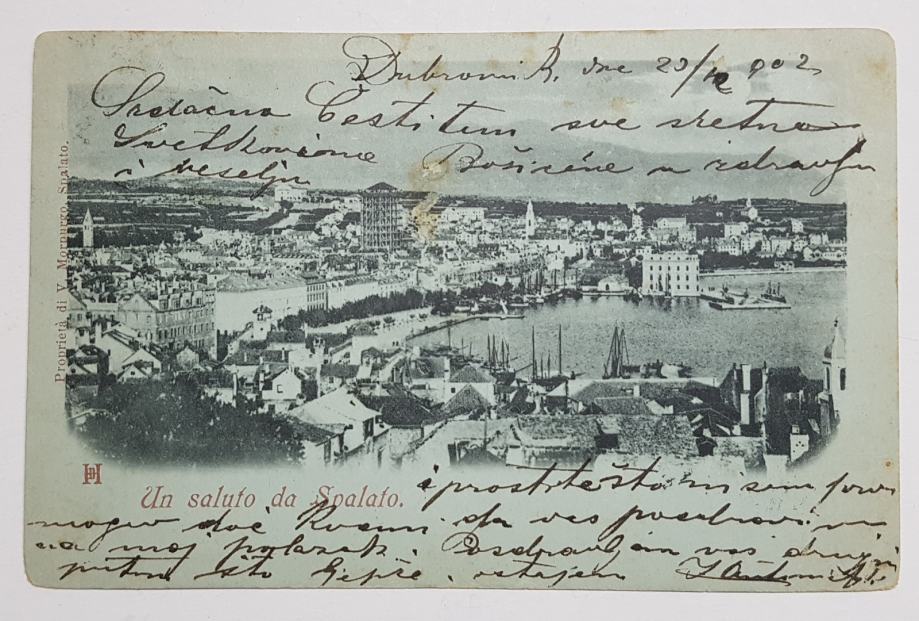 Dubrovnik, dne 23/12 902
Srdačno Čestitam sve sretne
Svetkovine Božićne u zdravlju
i veselju
Proprietà di V. Morpurgo, Spalato.
Un saluto da Spalato.
i prostite što nisam prvo
mogu doć k vami da vas pozdravim
na moj polazak. Pozdravljam vas
putem što lepše. ostajem